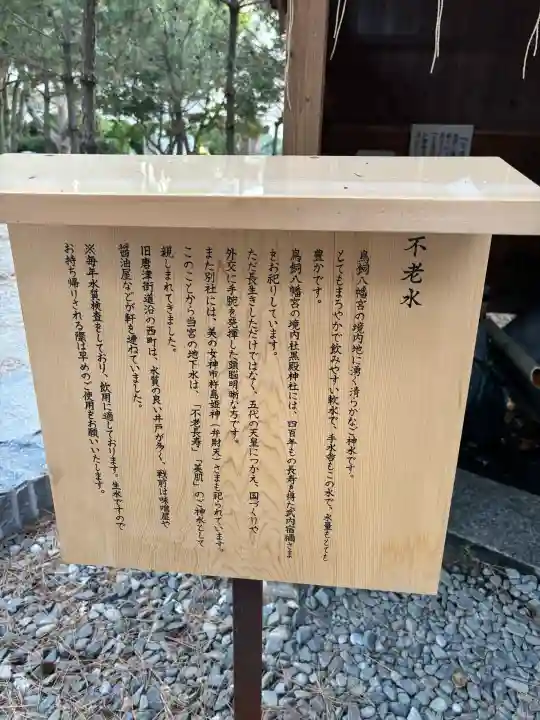 不老水
鳥飼八幡宮の境内地に湧く清らかなご神水です。
とてもまろやかで飲みやすい軟水で、手水舎もこの水で、水量もとても
豊かです。
鳥飼八幡宮の境内社黒殿神社には、四百年もの長寿を得た武内宿禰さま
をお祀りしています。
ただ長生きしただけではなく、五代の天皇につかえ、国づくりや
外交に手腕を発揮した頭脳明晰な方です。
また別社には、美の女神市杵島姫神（弁財天）さまも祀られています。
このことから当宮の地下水は、「不老長寿」「美肌」のご神水として
親しまれてきました。
旧唐津街道沿の西町は、水質の良い井戸が多く、戦前は味噌屋や
醤油屋などが軒を連ねていました。
※毎年水質検査をしており、飲用に適しております。生水ですので
お持ち帰りされる際は早めのご使用をお願いいたします。